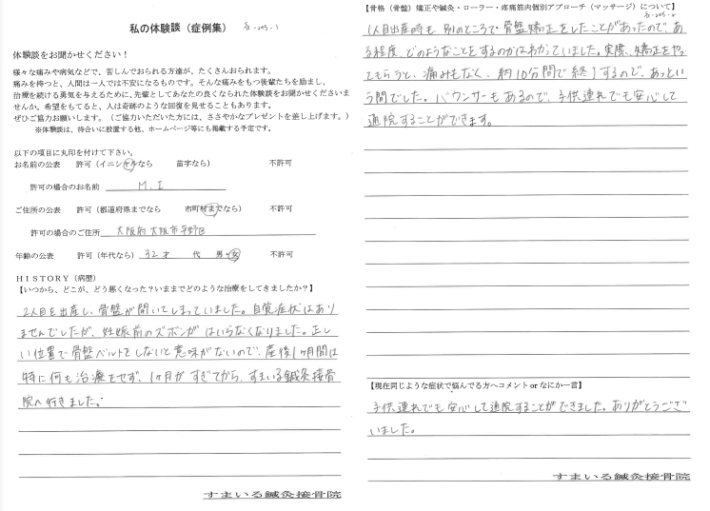 私の体験談（症例集）
体験談をお聞かせください！
様々な痛みや病気などで、苦しんでおられる方達が、たくさんおられます。
痛みを持つと、人間は一人では不安になるものです。そんな痛みをもつ後輩たちを励まし、
治療を続ける勇気を与えるために、先輩としてあなたの良くなられた体験談をお聞かせくださいませ
んか。希望をもてると、人は奇跡のような回復を見せることもあります。
ぜひご協力お願いします。（ご協力いただいた方には、ささやかなプレゼントを差し上げます。）
※体験談は、待合いに設置する他、ホームページ等にも掲載する予定です。
以下の項目に丸印を付けて下さい。
お名前の公表　許可（イニシャルなら　苗字なら）　不許可
許可の場合のお名前　M. I
ご住所の公表　許可（都道府県までなら　市町村までなら）　不許可
許可の場合のご住所　大阪府大阪市平野区
年齢の公表　許可（年代なら）　32才　代　男・女　不許可
HISTORY（病歴）
【いつから、どこが、どう悪くなった？いままでどのような治療をしてきましたか？】
2人目を出産し、骨盤が開いてしまっていました。自覚症状はあり
ませんでしたが、妊娠前のズボンがはいらなくなりました。正し
い位置で骨盤ベルトをしないと意味がないので、産後1ヶ月間は
特に何も治療をせず、1ヶ月がすぎてから、すまいる鍼灸接骨
院へ行きました。
すまいる鍼灸接骨院
【骨格（骨盤）矯正や鍼灸・ローラー・疼痛筋肉個別アプローチ（マッサージ）について】
1人目出産時も別のところで骨盤矯正をしたことがあったので、あ
る程度、どのようなことをするのかはわかっていました。実際、矯正をやっ
てもらうと、痛みもなく、約10分間で終了するので、あっとい
う間でした。バウンサーもあるので、子供連れでも安心して
通院することができます。
【現在同じような症状で悩んでる方へコメント or なにか一言】
子供連れでも安心して通院することができました。ありがとうござ
いました。
すまいる鍼灸接骨院